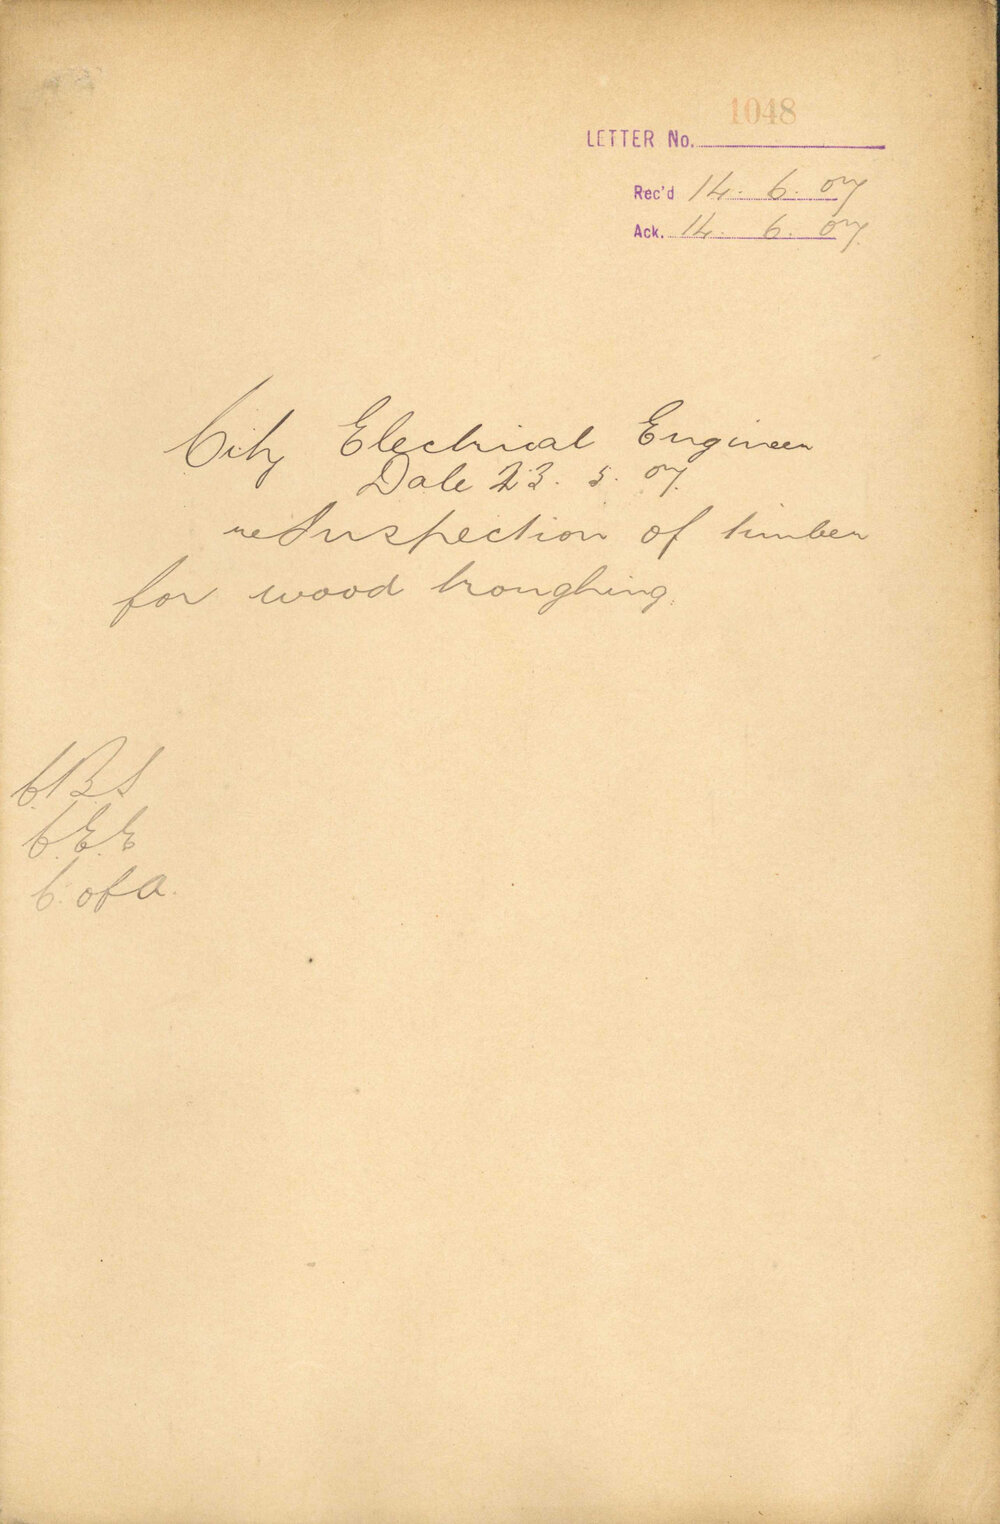 1048
LETTER No.
Rec'd 14. 6. 07
Ack. 14. 6. 07.
City Electrical Engineer
Date 23. 5. 07.
re Inspection of timber
for wood troughing.
C.B.S
C.E.E
C. of A.